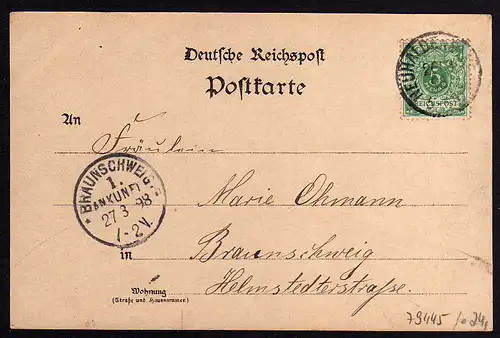 Deutsche Reichspost
Postkarte
5
REICHSPOST
An
Fräulein
* BRAUNSCHWEIG
1.
ANKUNFT
27 3 98
1-2V.
Marie Ohmann
in
Braunschweig
Wohnung
(Straße und Hausnummer)
Helmstedterstraße.
79445
24,